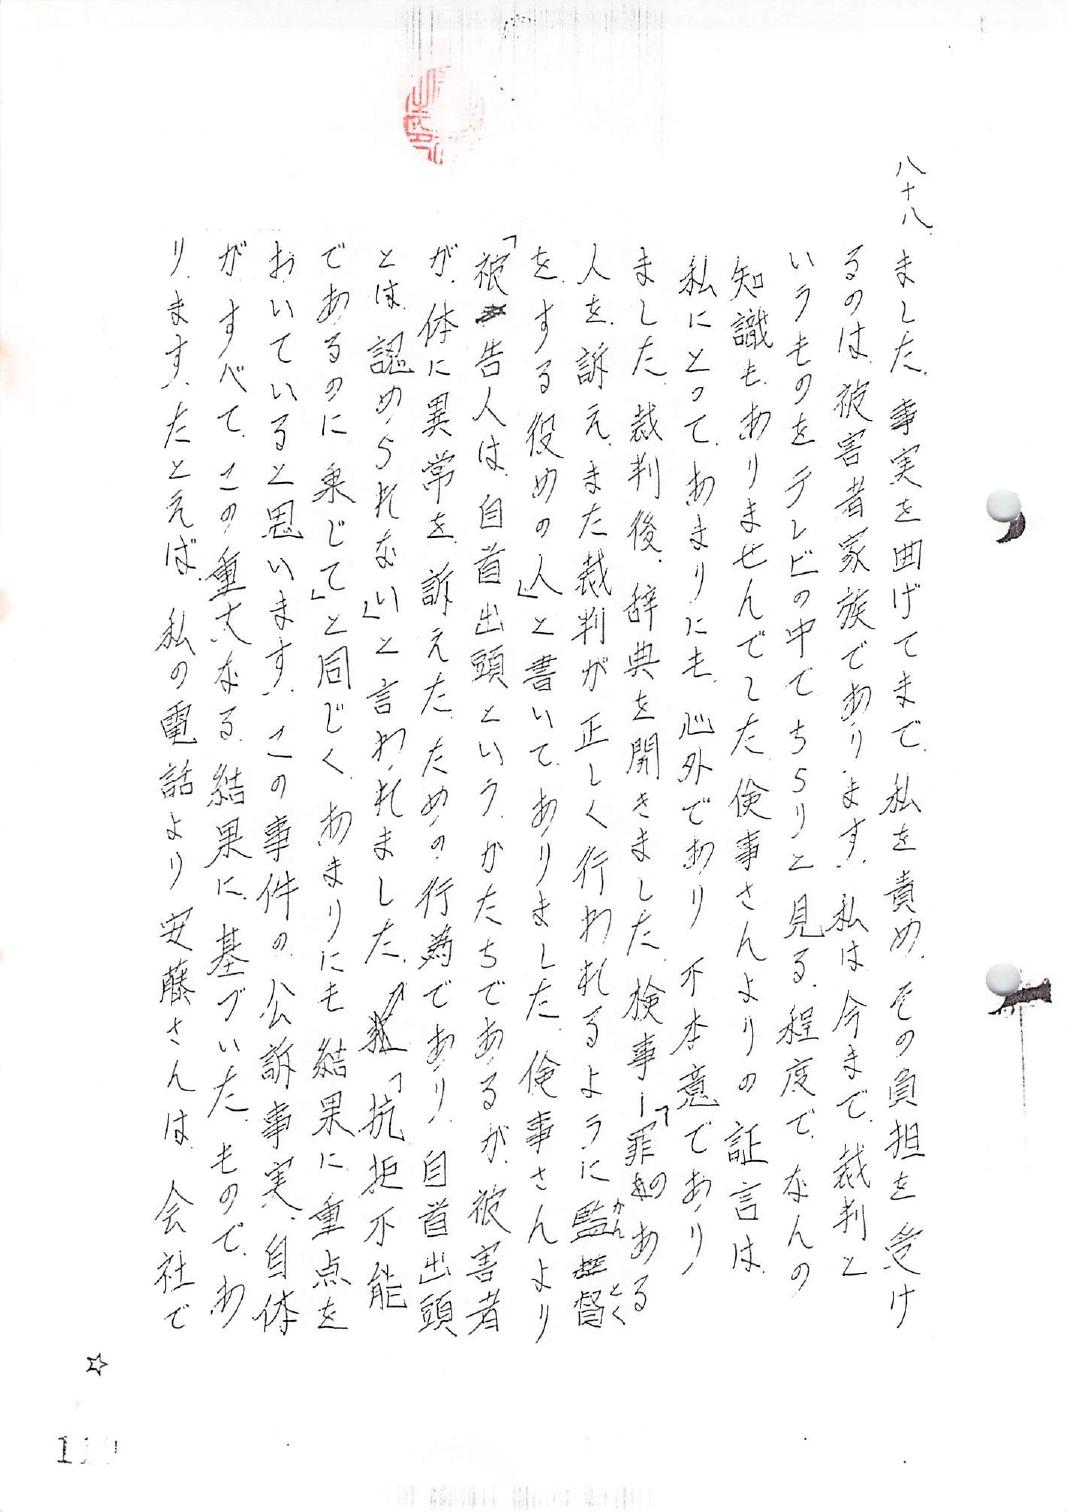 八十八
ました。事実を曲げてまで、私を責め、その負担を受け
るのは、被害者家族であります。私は今まで、裁判と
いうものをテレビの中でちらりと見る、程度で、なんの
知識も、ありませんでした。倹事さんよりの証言は、
私にとって、あまりにも、心外であり、不本意であり
ました。裁判後、辞典を開きました。検事ー「罪のある
人を、訴え、また裁判が正しく行われるように監督
かんとく
を、する役めの人」と書いてありました。倹事さんより
「被告人は、自首出頭という、かたちであるが、被害者
が、体に異常を、訴えた、ための行為であり、自首出頭
とは、認められない」と言われました。「抗拒不能
であるのに乗じて」と同じく、あまりにも結果に重点を
おいていると思います。この事件の公訴事実、自体
が、すべて、この重大なる、結果に、基づいた、ものであ
ります。たとえば、私の電話より安藤さんは、会社で
☆